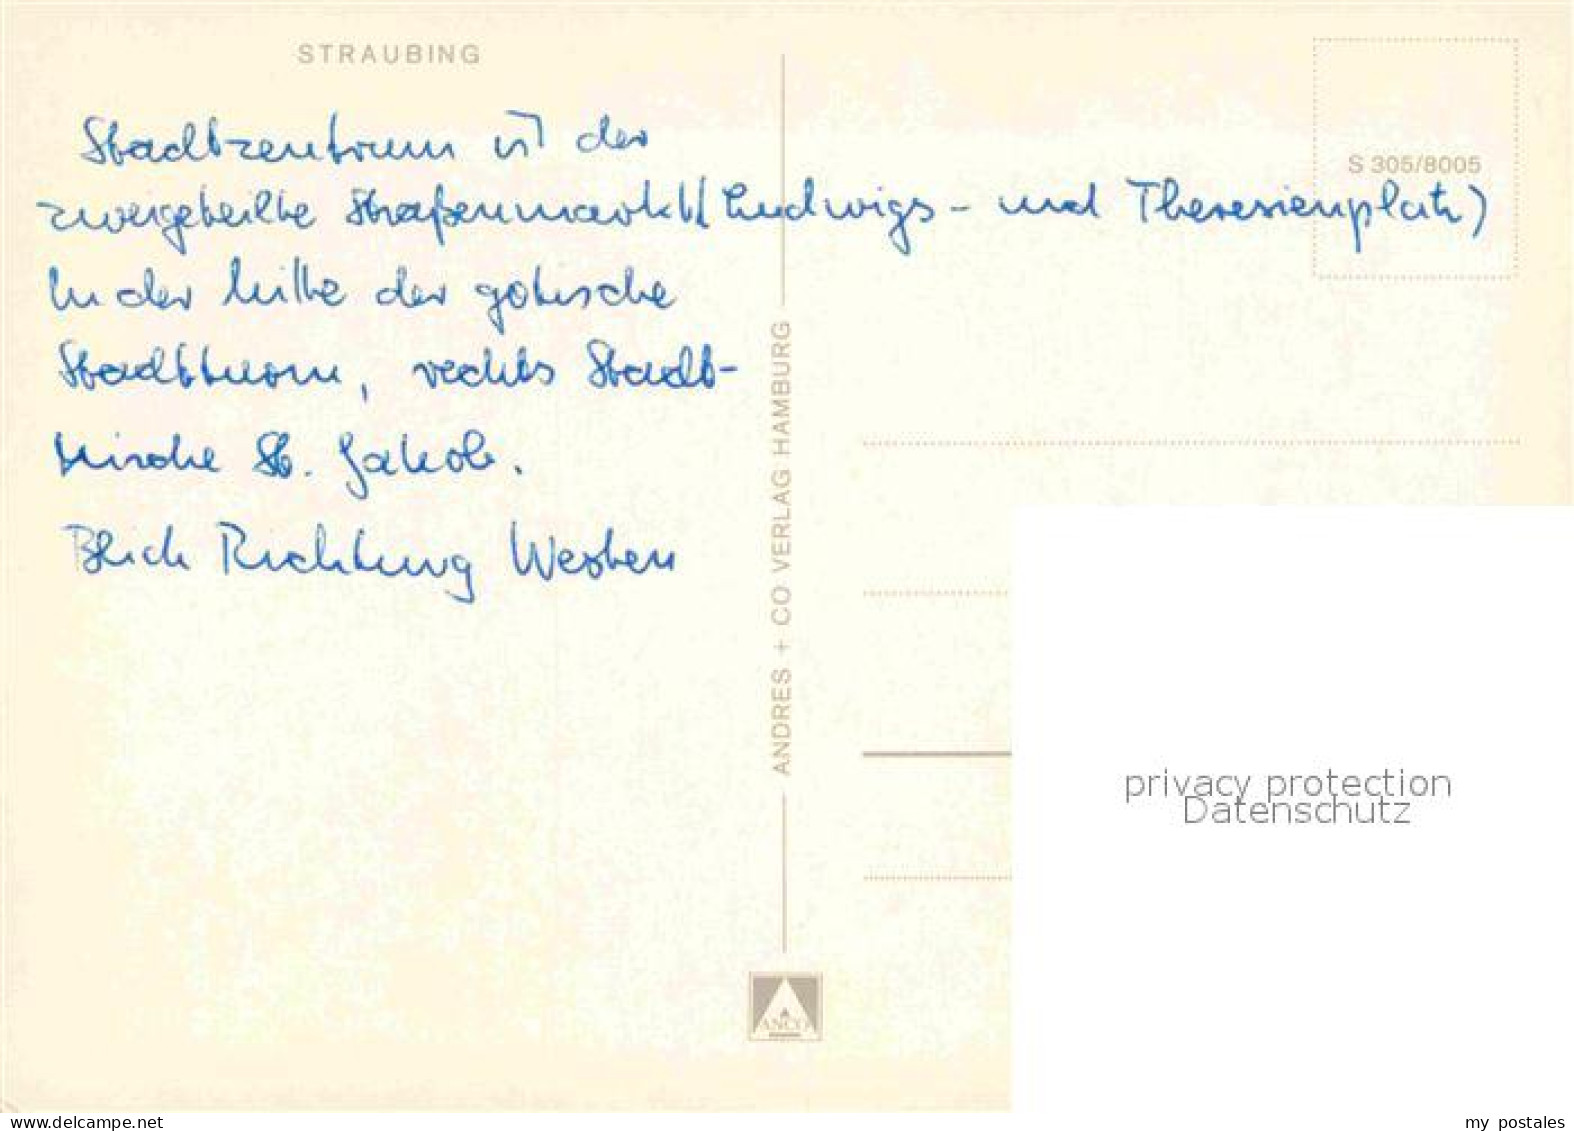 STRAUBING
S 305/8005
Stadtzentrum ist der
zweigeteilte Straßenmarkt (Ludwigs- und Theresienplatz)
In der Mitte der gotische
Stadtturm, rechts Stadt-
kirche St. Jakob.
Blick Richtung Westen
ANDRES + CO VERLAG HAMBURG
ANCO
privacy protection
Datenschutz
www.delcampe.net
my_postales